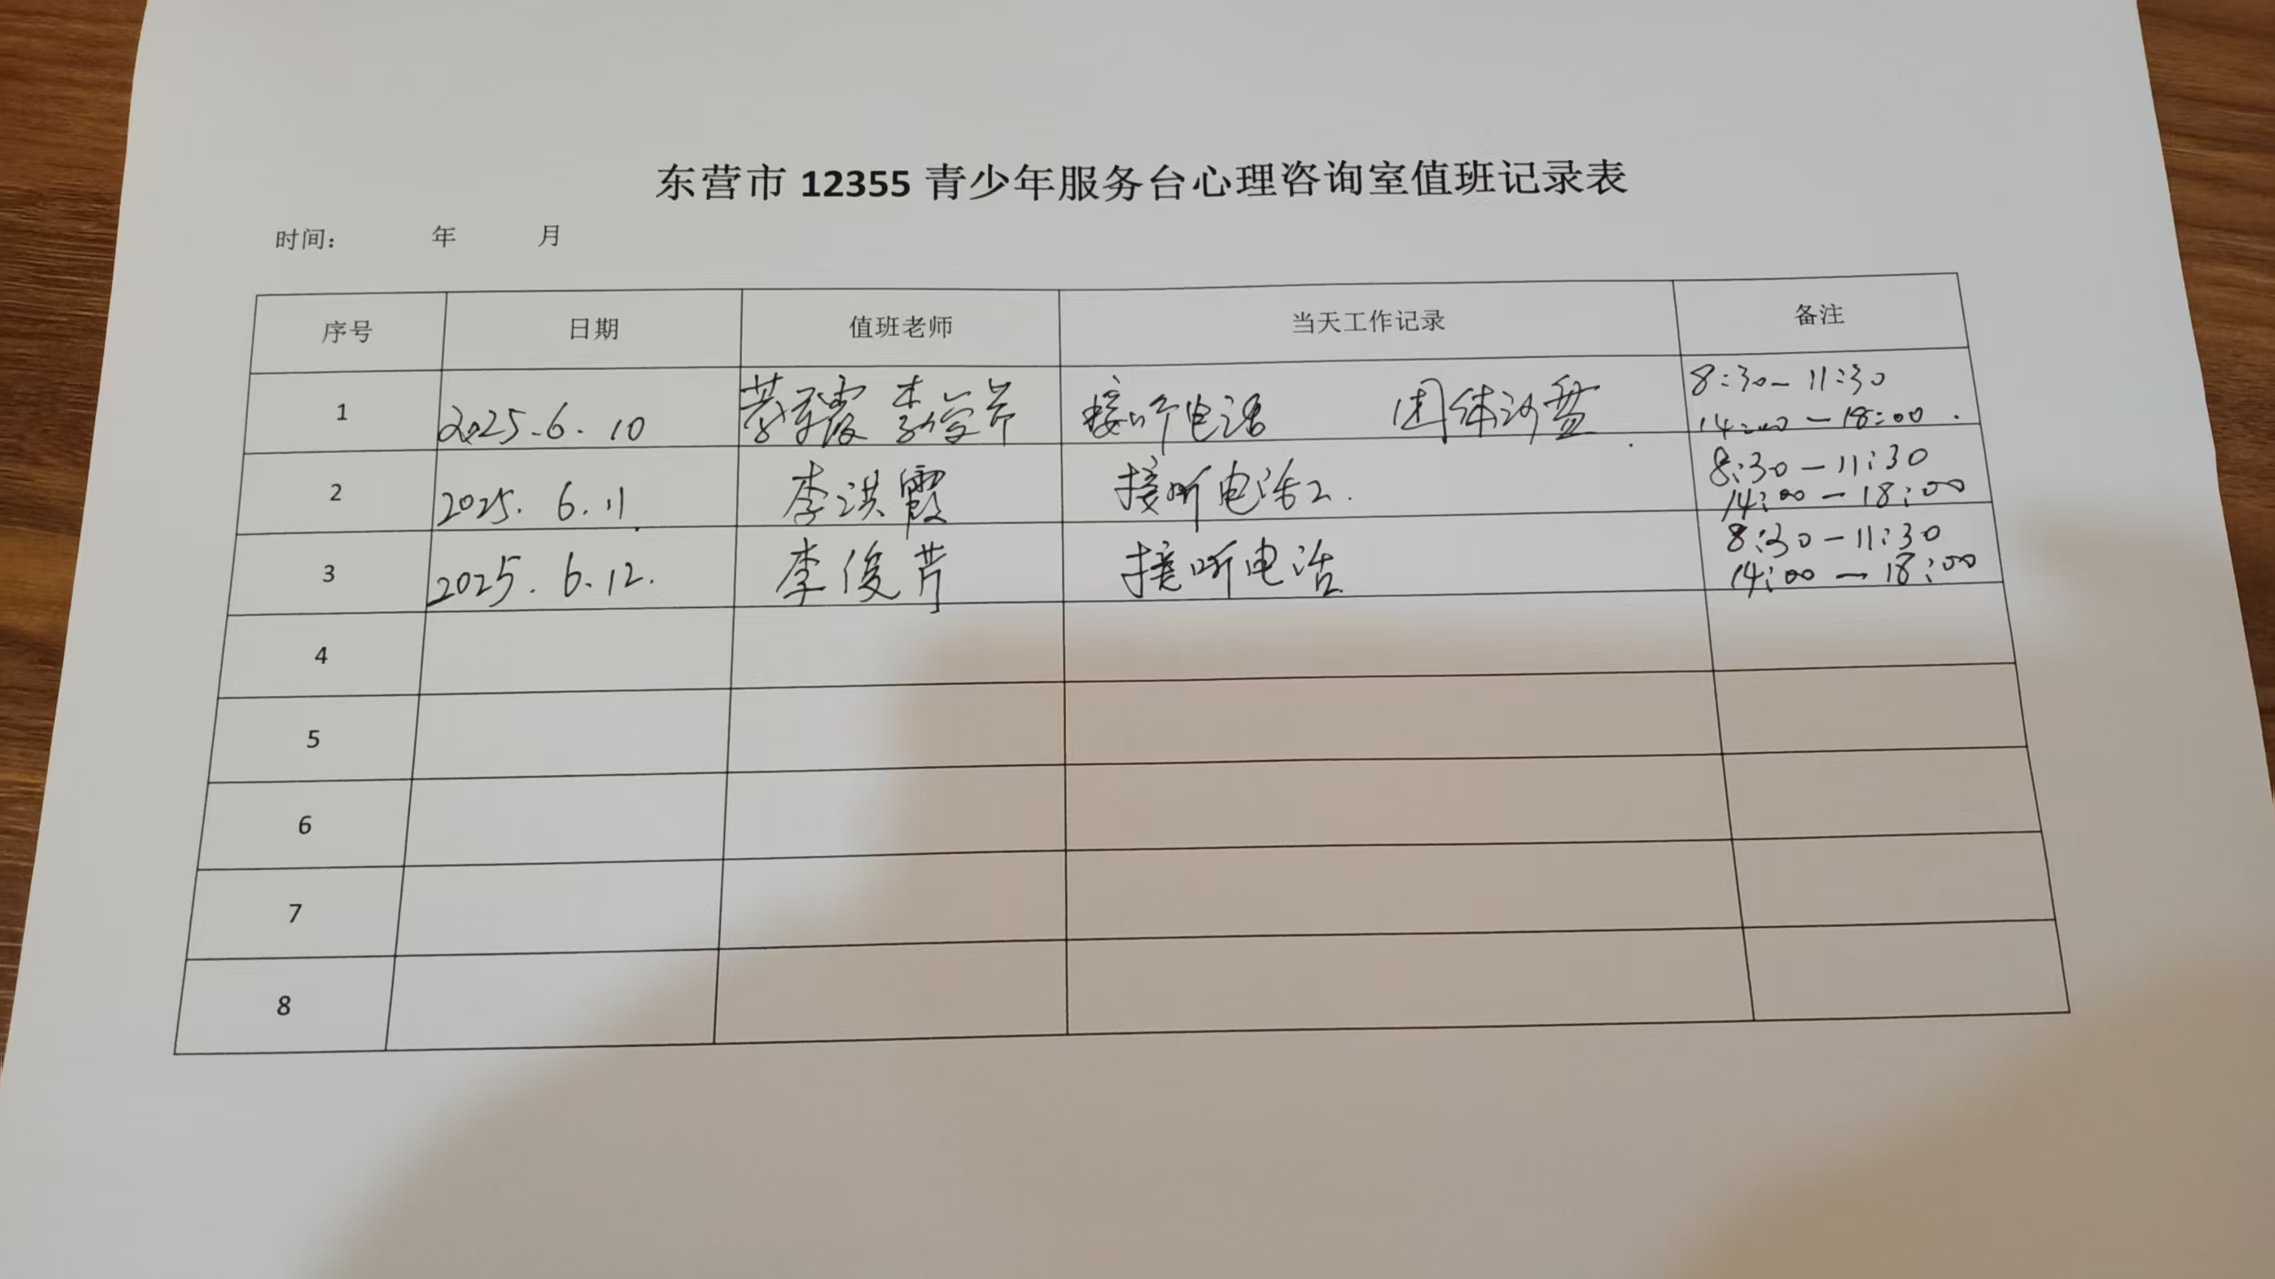 东营市 12355 青少年服务台心理咨询室值班记录表
时间： 年 月
序号 日期 值班老师 当天工作记录 备注
1 2025.6.10 李俊芹 接听电话 团体沙盘 8:30-11:30
14:00-18:00.
2 2025.6.11. 李洪霞 接听电话 8:30-11:30
14:00-18:00
3 2025.6.12. 李俊芹 接听电话 8:30-11:30
14:00-18:00
4
5
6
7
8